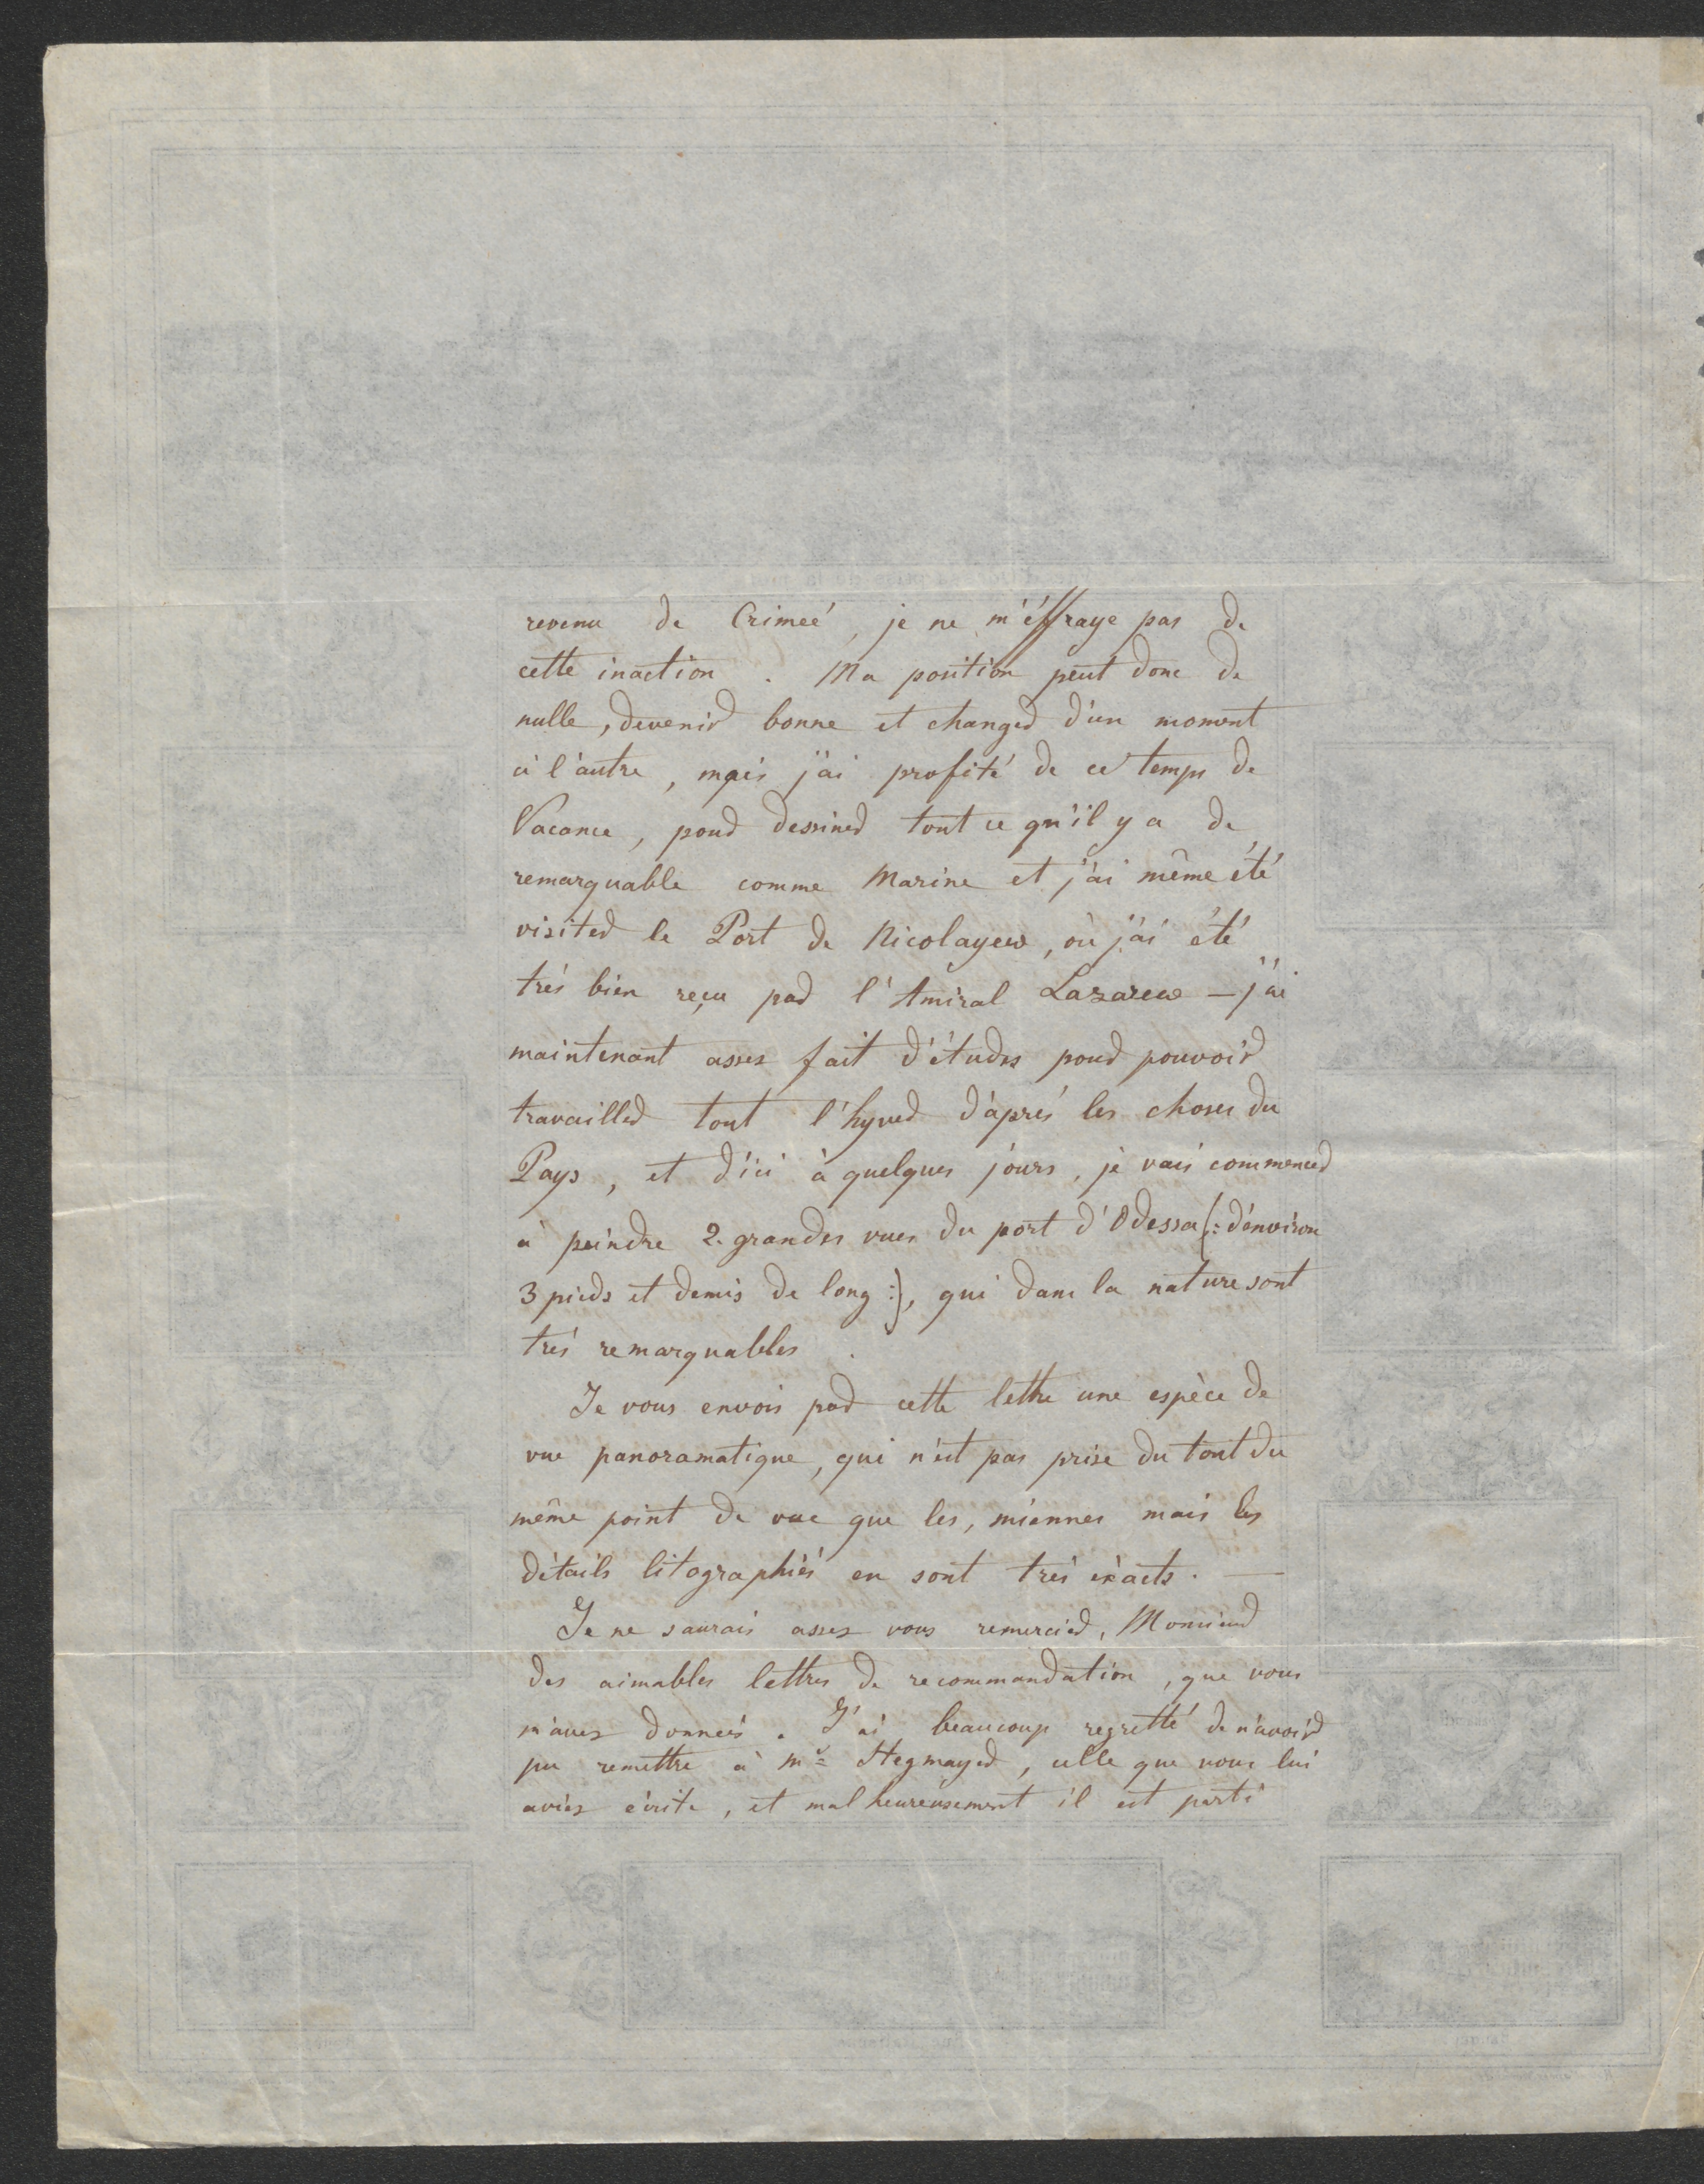 revenu de Crimeé, je ne m'éffraye pas de
cette inaction. Ma position peut donc de
nulle, devenir bonne et changer d'un moment
à l'autre, mais j'ai profité de ce temps de
Vacance, pour dessiner tout ce qu'il y a de
remarquable comme Marine et j'ai même été
visiter le Port de Nicolayew, où j'ai été
trés bien reçu par l'Amiral Lazarew — j'ai
maintenant assez fait d'études pour pouvoir
travailler tout l'hyver d'aprés les choses du
Pays, et d'ici à quelques jours, je vais commencer
à peindre 2. grandes vues du port d'Odessa (: d'environ
3 pieds et demis de long :), qui dans la nature sont
trés remarquables.
Je vous envois par cette lettre une espèce de
vue panoramatique, qui n'est pas prise du tout du
même point de vue que les, miennes mais les
détails litographiés en sont trés éxacts. —
Je ne saurais assez vous remercier, Monsieur
des aimables lettres de recommandation, que vous
m'avez donneés. J'ai beaucoup regretté de n'avoir
pu remettre à Mr Stegmayer, celle que vous lui
aviez écrite, et malheureusement il est parti